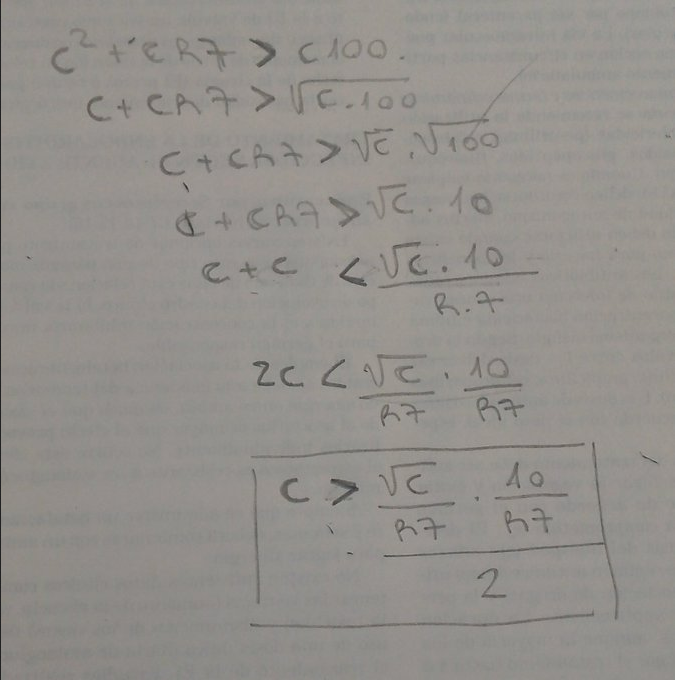 c² + cR7 > c100.
c + cR7 > √c.100
c + cR7 > √c . √100
c + cR7 > √c . 10
c + c < √c . 10 / R.7
2c < √c / R7 . 10 / R7
c > √c / R7 . 10 / R7 / 2